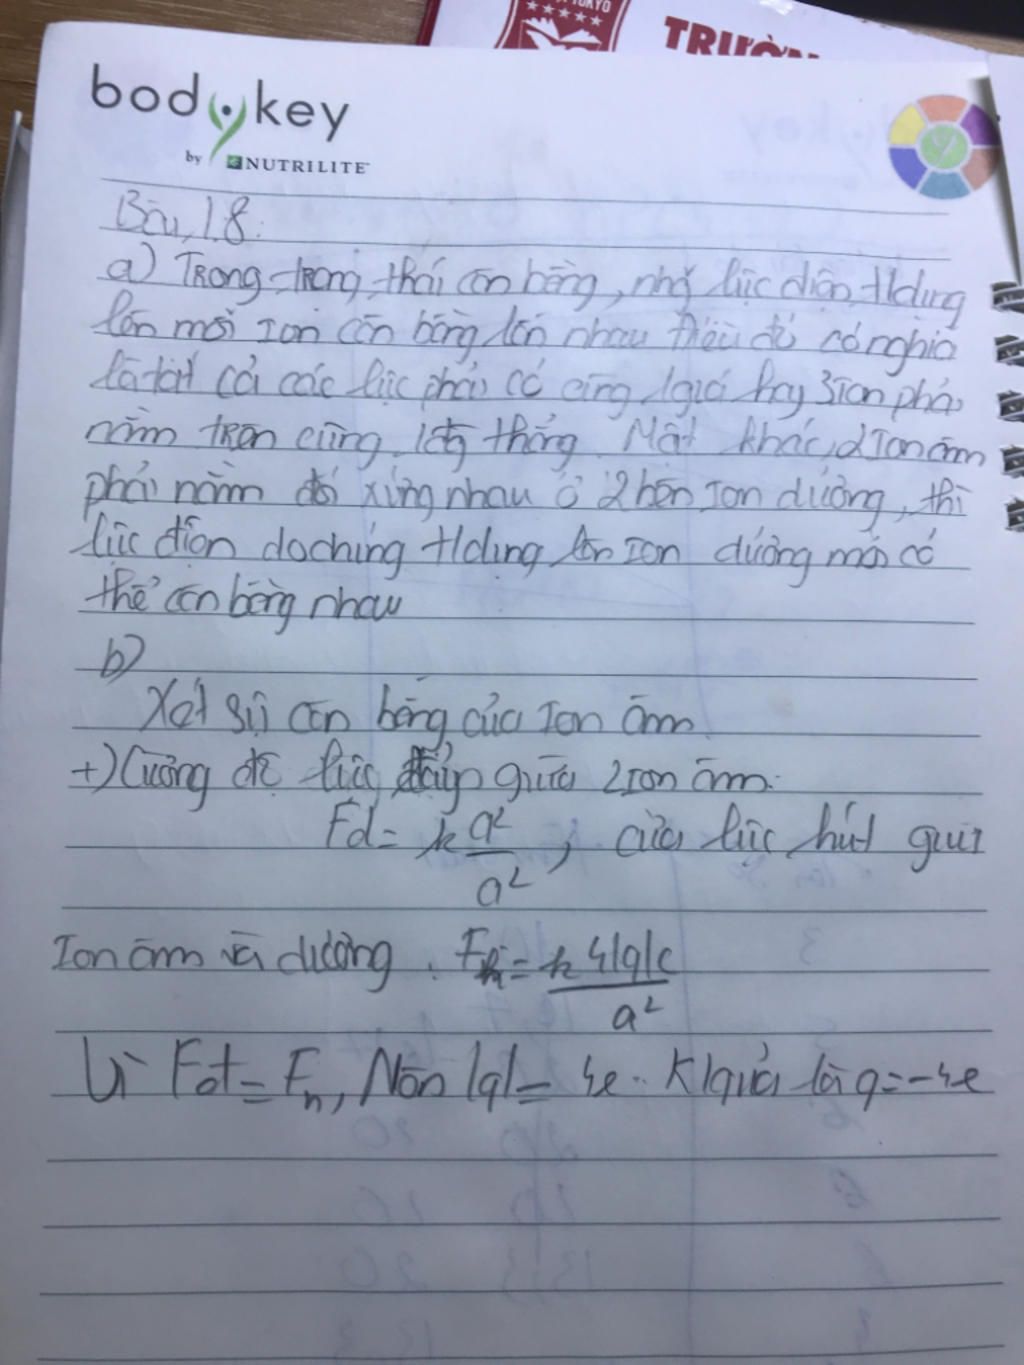 TOKYO
TRƯỜN
bodykey
by NUTRILITE
Bài 1.8:
a) Trong trạng thái cân bằng, những lực điện t/dụng
lên mỗi Ion cân bằng lẫn nhau điều đó có nghĩa
là tất cả các lực phải có cùng 1 giá hay 3 Ion phải
nằm trên cùng 1 đg thẳng. Mặt khác, 2 Ion âm
phải nằm đối xứng nhau ở 2 bên Ion dương, thì
lực điện do chúng t/dụng lên Ion dương mới có
thể cân bằng nhau
b)
Xét sự cân bằng của Ion âm
+) Cường độ lực đẩy giữa 2 Ion âm:
Fd = k q²/a², của lực hút giữa
Ion âm và dương: Fh = k 4|q|e/a²
Vì Fd = Fh, Nên |q| = 4e. K/quả là q = -4e